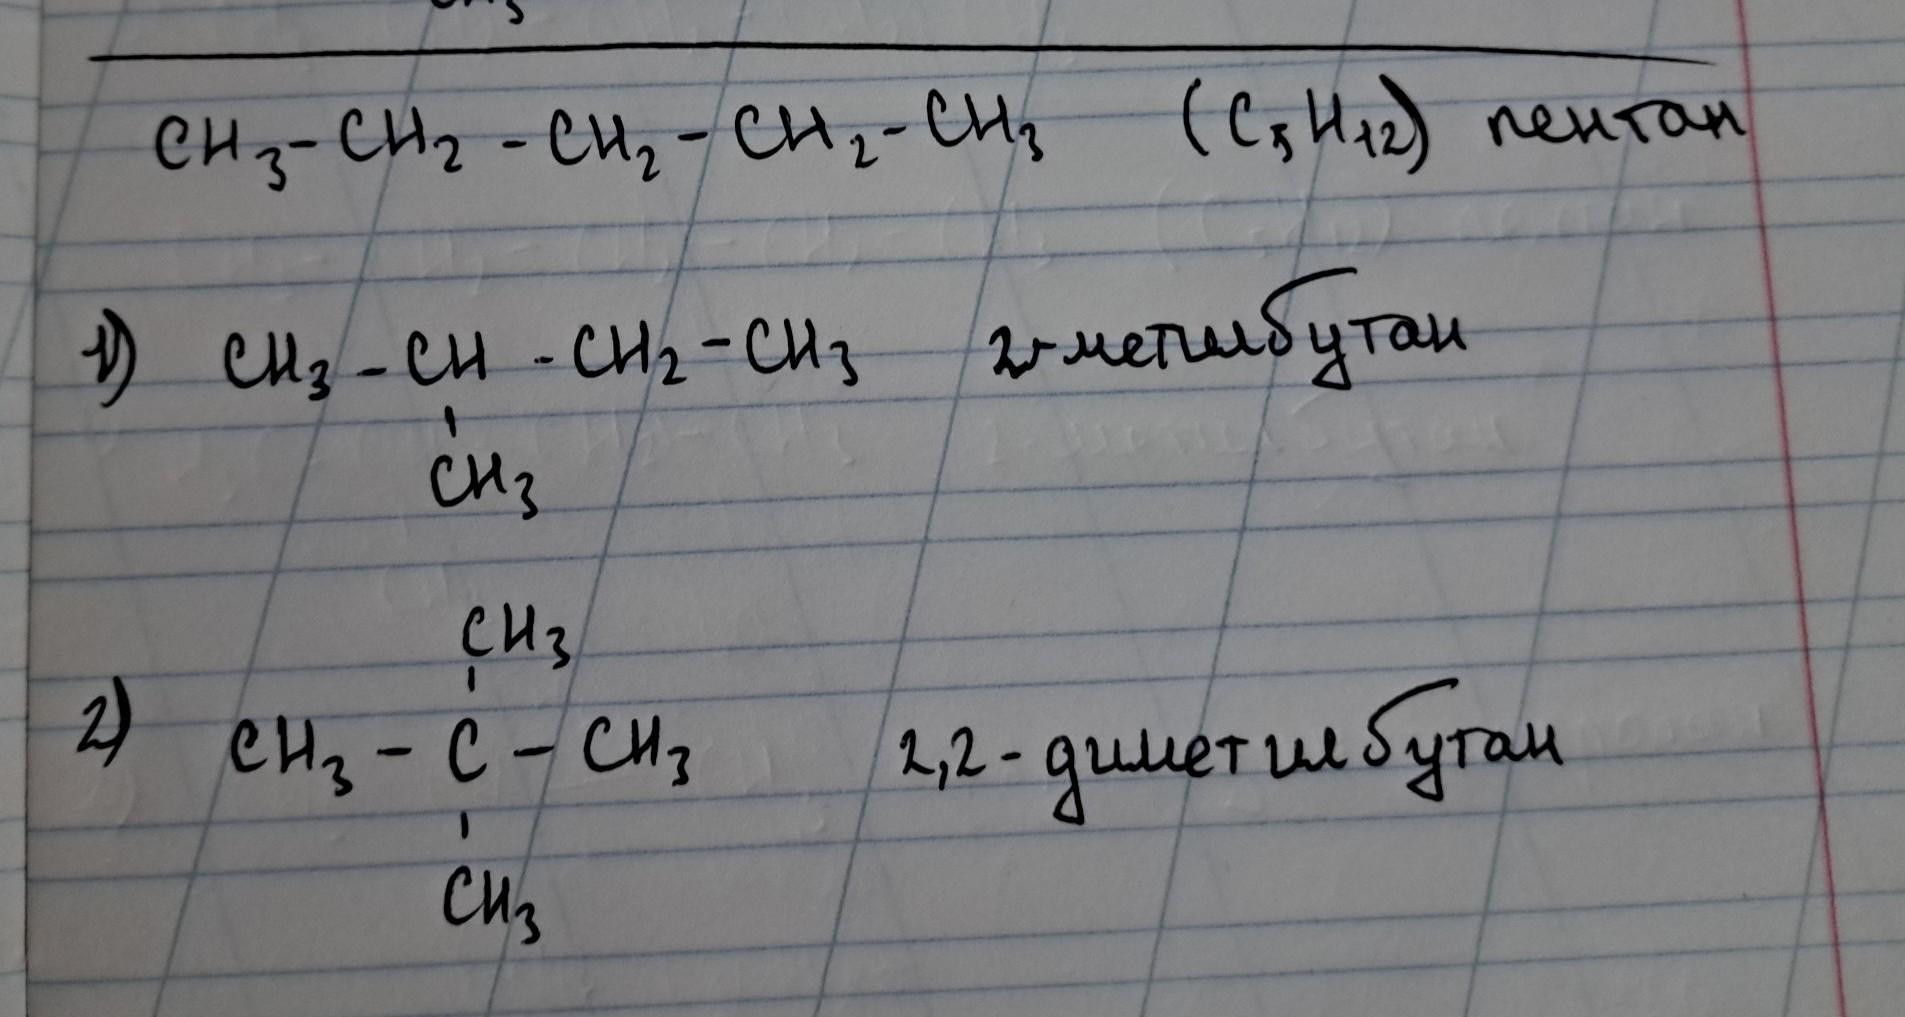 CH₃-CH₂-CH₂-CH₂-CH₃ (C₅H₁₂) пентан
1) CH₃-CH-CH₂-CH₃ 2-метилбутан
CH₃
CH₃
2) CH₃-C-CH₃ 2,2-диметилбутан
CH₃